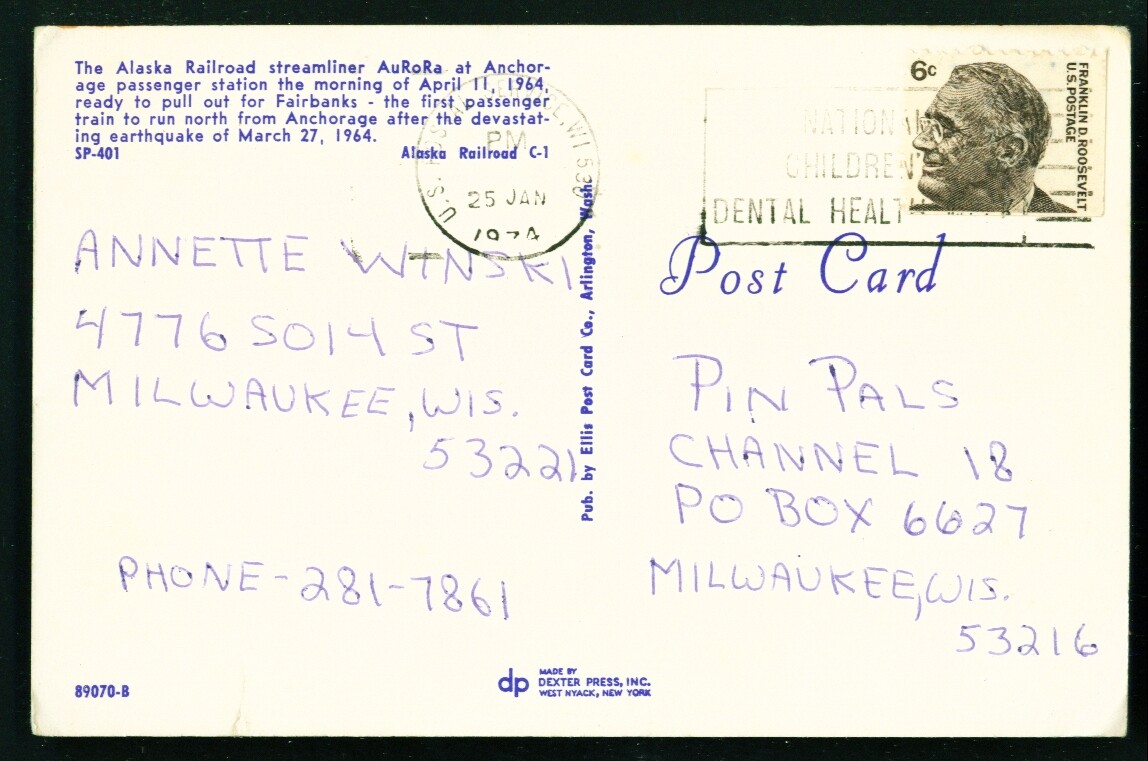 The Alaska Railroad streamliner AuRoRa at Anchor-
age passenger station the morning of April 11, 1964,
ready to pull out for Fairbanks - the first passenger
train to run north from Anchorage after the devastat-
ing earthquake of March 27, 1964.
SP-401 Alaska Railroad C-1
U.S. WI 53
PM
25 JAN
1974
NATIONAL
CHILDREN'
DENTAL HEALTH
6c
FRANKLIN D. ROOSEVELT
U.S. POSTAGE
ANNETTE WINSKI
4776 SO14 ST
MILWAUKEE, WIS.
53221
PHONE-281-7861
Pub. by Ellis Post Card Co., Arlington, Washc
Post Card
PIN PALS
CHANNEL 18
PO BOX 6627
MILWAUKEE, WIS.
53216
89070-B
dp MADE BY
DEXTER PRESS, INC.
WEST NYACK, NEW YORK